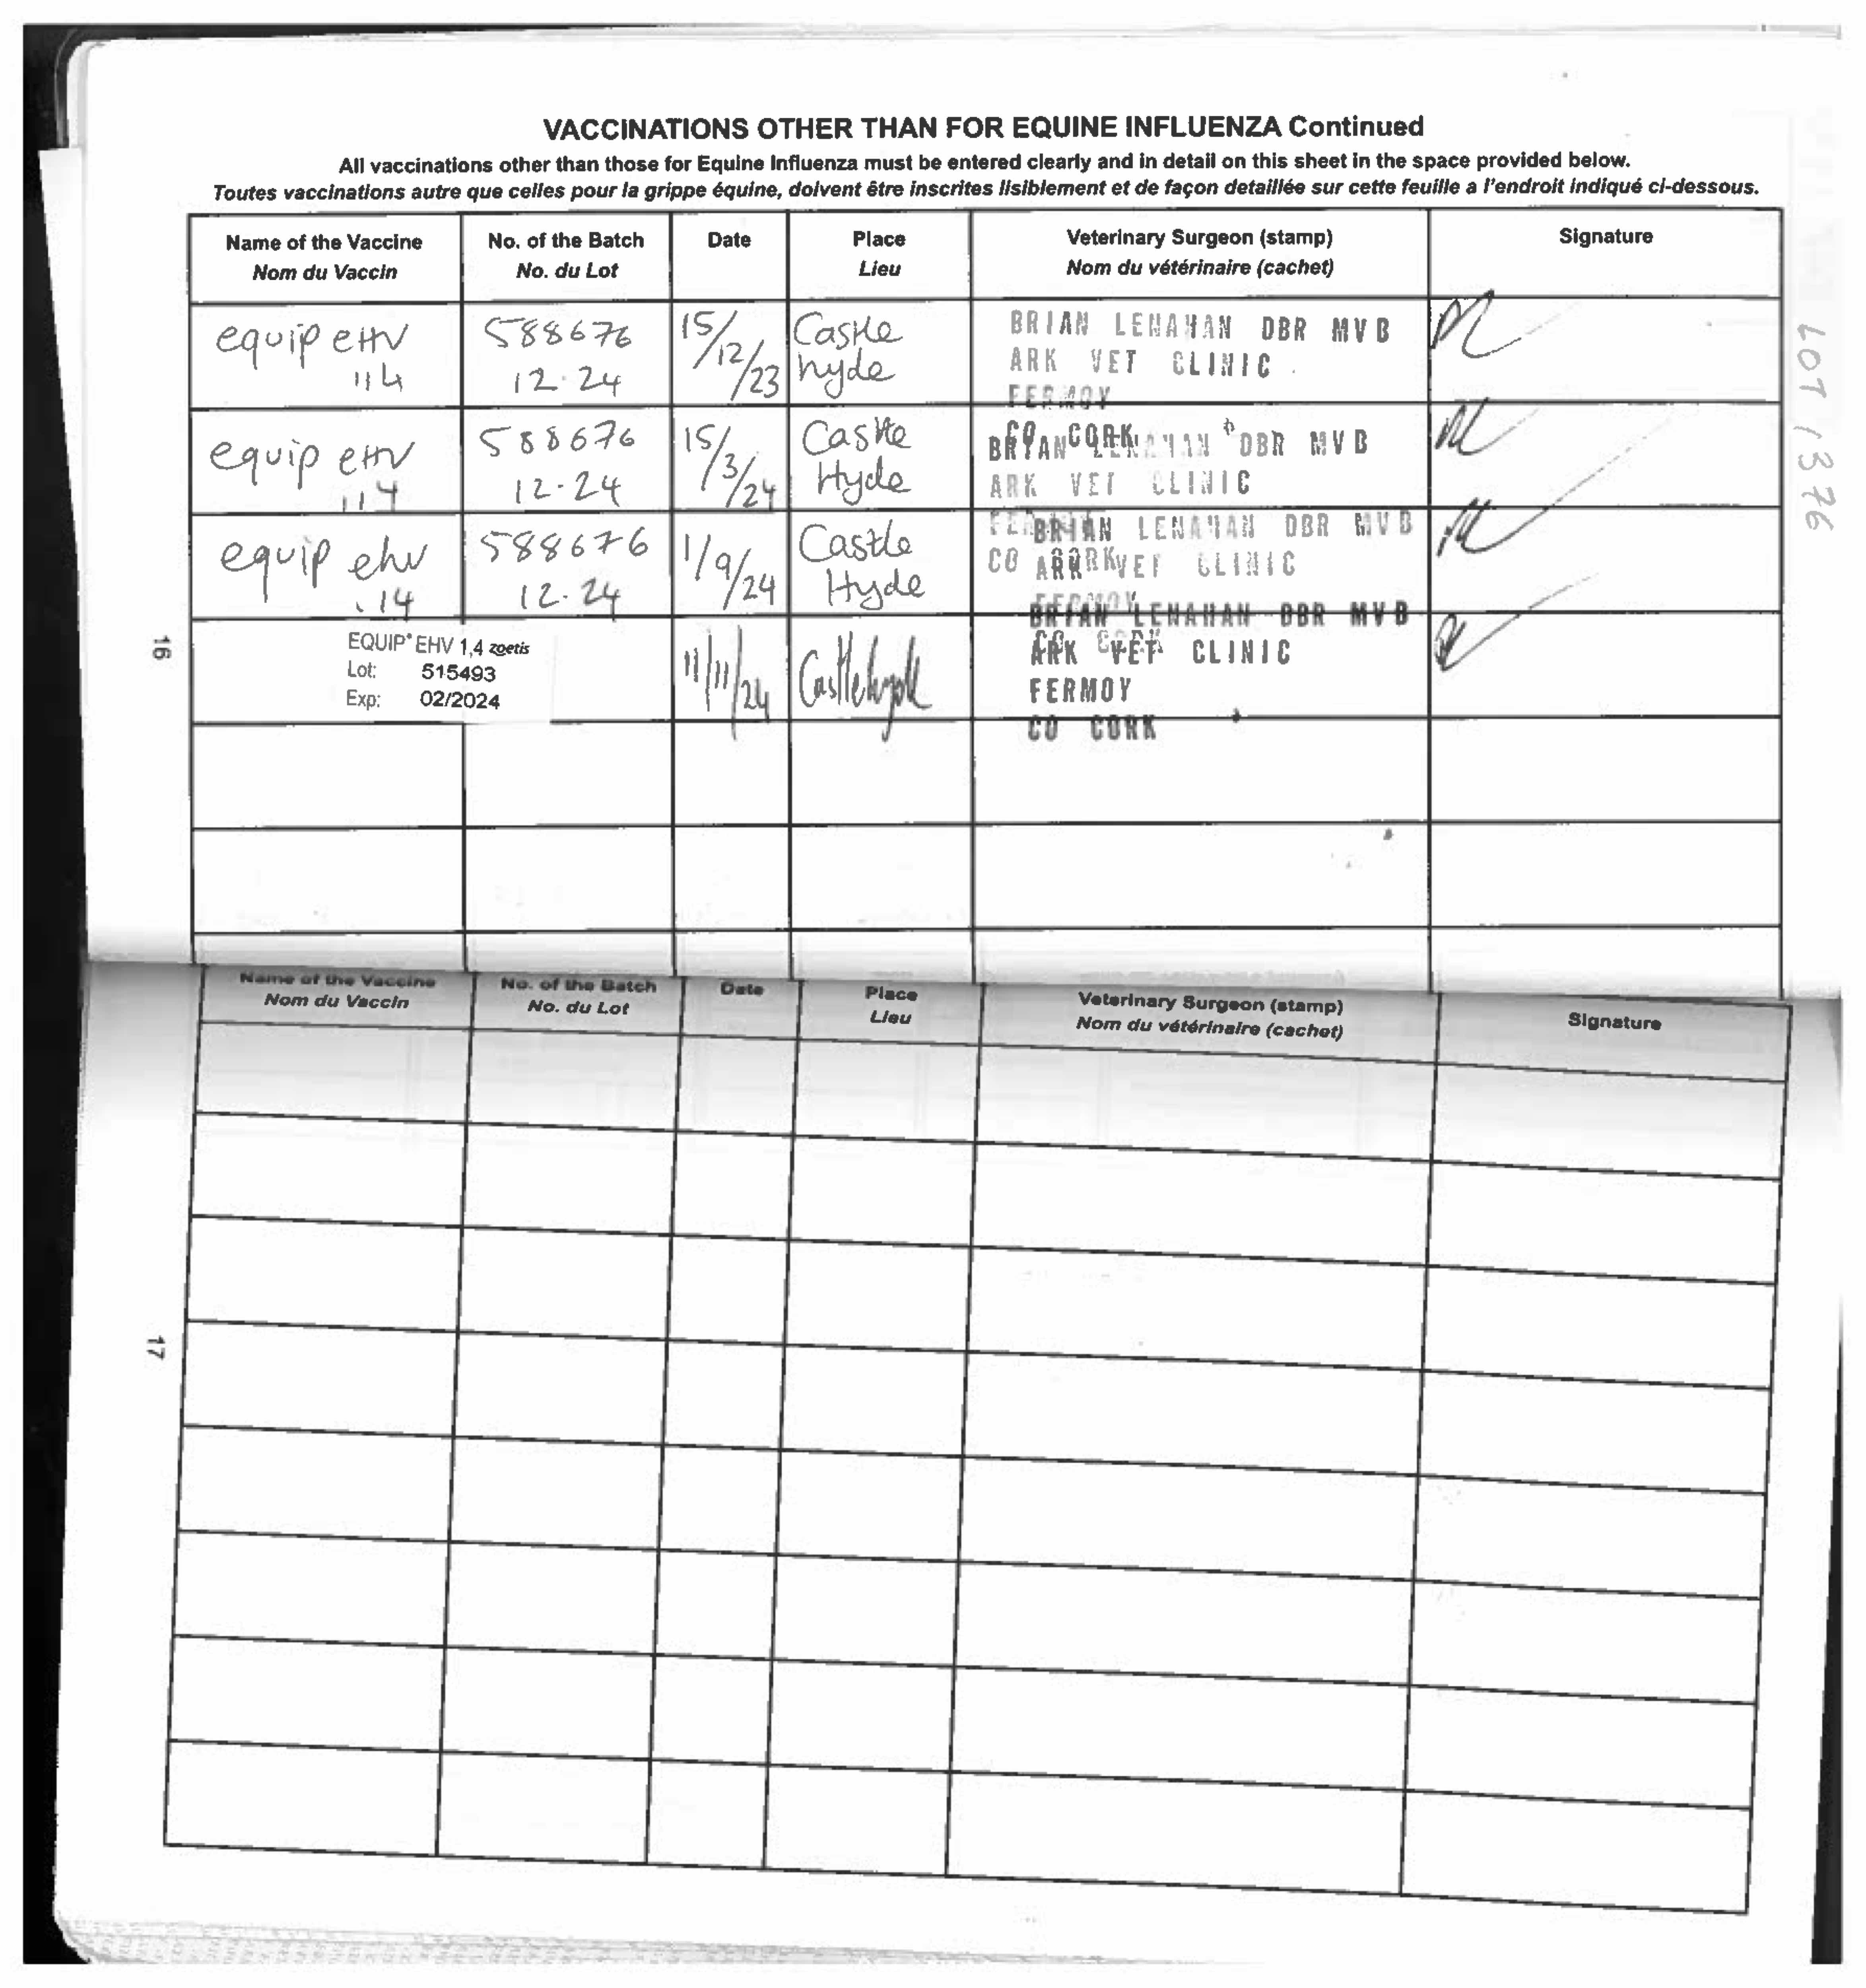 VACCINATIONS OTHER THAN FOR EQUINE INFLUENZA Continued
All vaccinations other than those for Equine Influenza must be entered clearly and in detail on this sheet in the space provided below.
Toutes vaccinations autre que celles pour la grippe équine, doivent être inscrites lisiblement et de façon detaillée sur cette feuille a l'endroit indiqué ci-dessous.
Name of the Vaccine No. of the Batch Date Place Veterinary Surgeon (stamp) Signature
Nom du Vaccin No. du Lot Lieu Nom du vétérinaire (cachet)
equip eHV 588676 15/12/23 Castle BRIAN LENAHAN DBR MVB
114 12.24 hyde ARK VET CLINIC
FERMOY
CO CORK
equip eHV 588676 15/3/24 Castle BRIAN LENAHAN DBR MVB
114 12.24 Hyde ARK VET CLINIC
FERMOY
CO CORK
equip ehv 588676 1/9/24 Castle BRIAN LENAHAN DBR MVB
.14 12.24 Hyde ARK VET CLINIC
FERMOY
CO CORK
EQUIP® EHV 1,4 zoetis 11/11/24 Castlehyde BRIAN LENAHAN DBR MVB
Lot: 515493 ARK VET CLINIC
Exp: 02/2024 FERMOY
CO CORK
16
LOT 1376
Name of the Vaccine No. of the Batch Date Place Veterinary Surgeon (stamp) Signature
Nom du Vaccin No. du Lot Lieu Nom du vétérinaire (cachet)
17